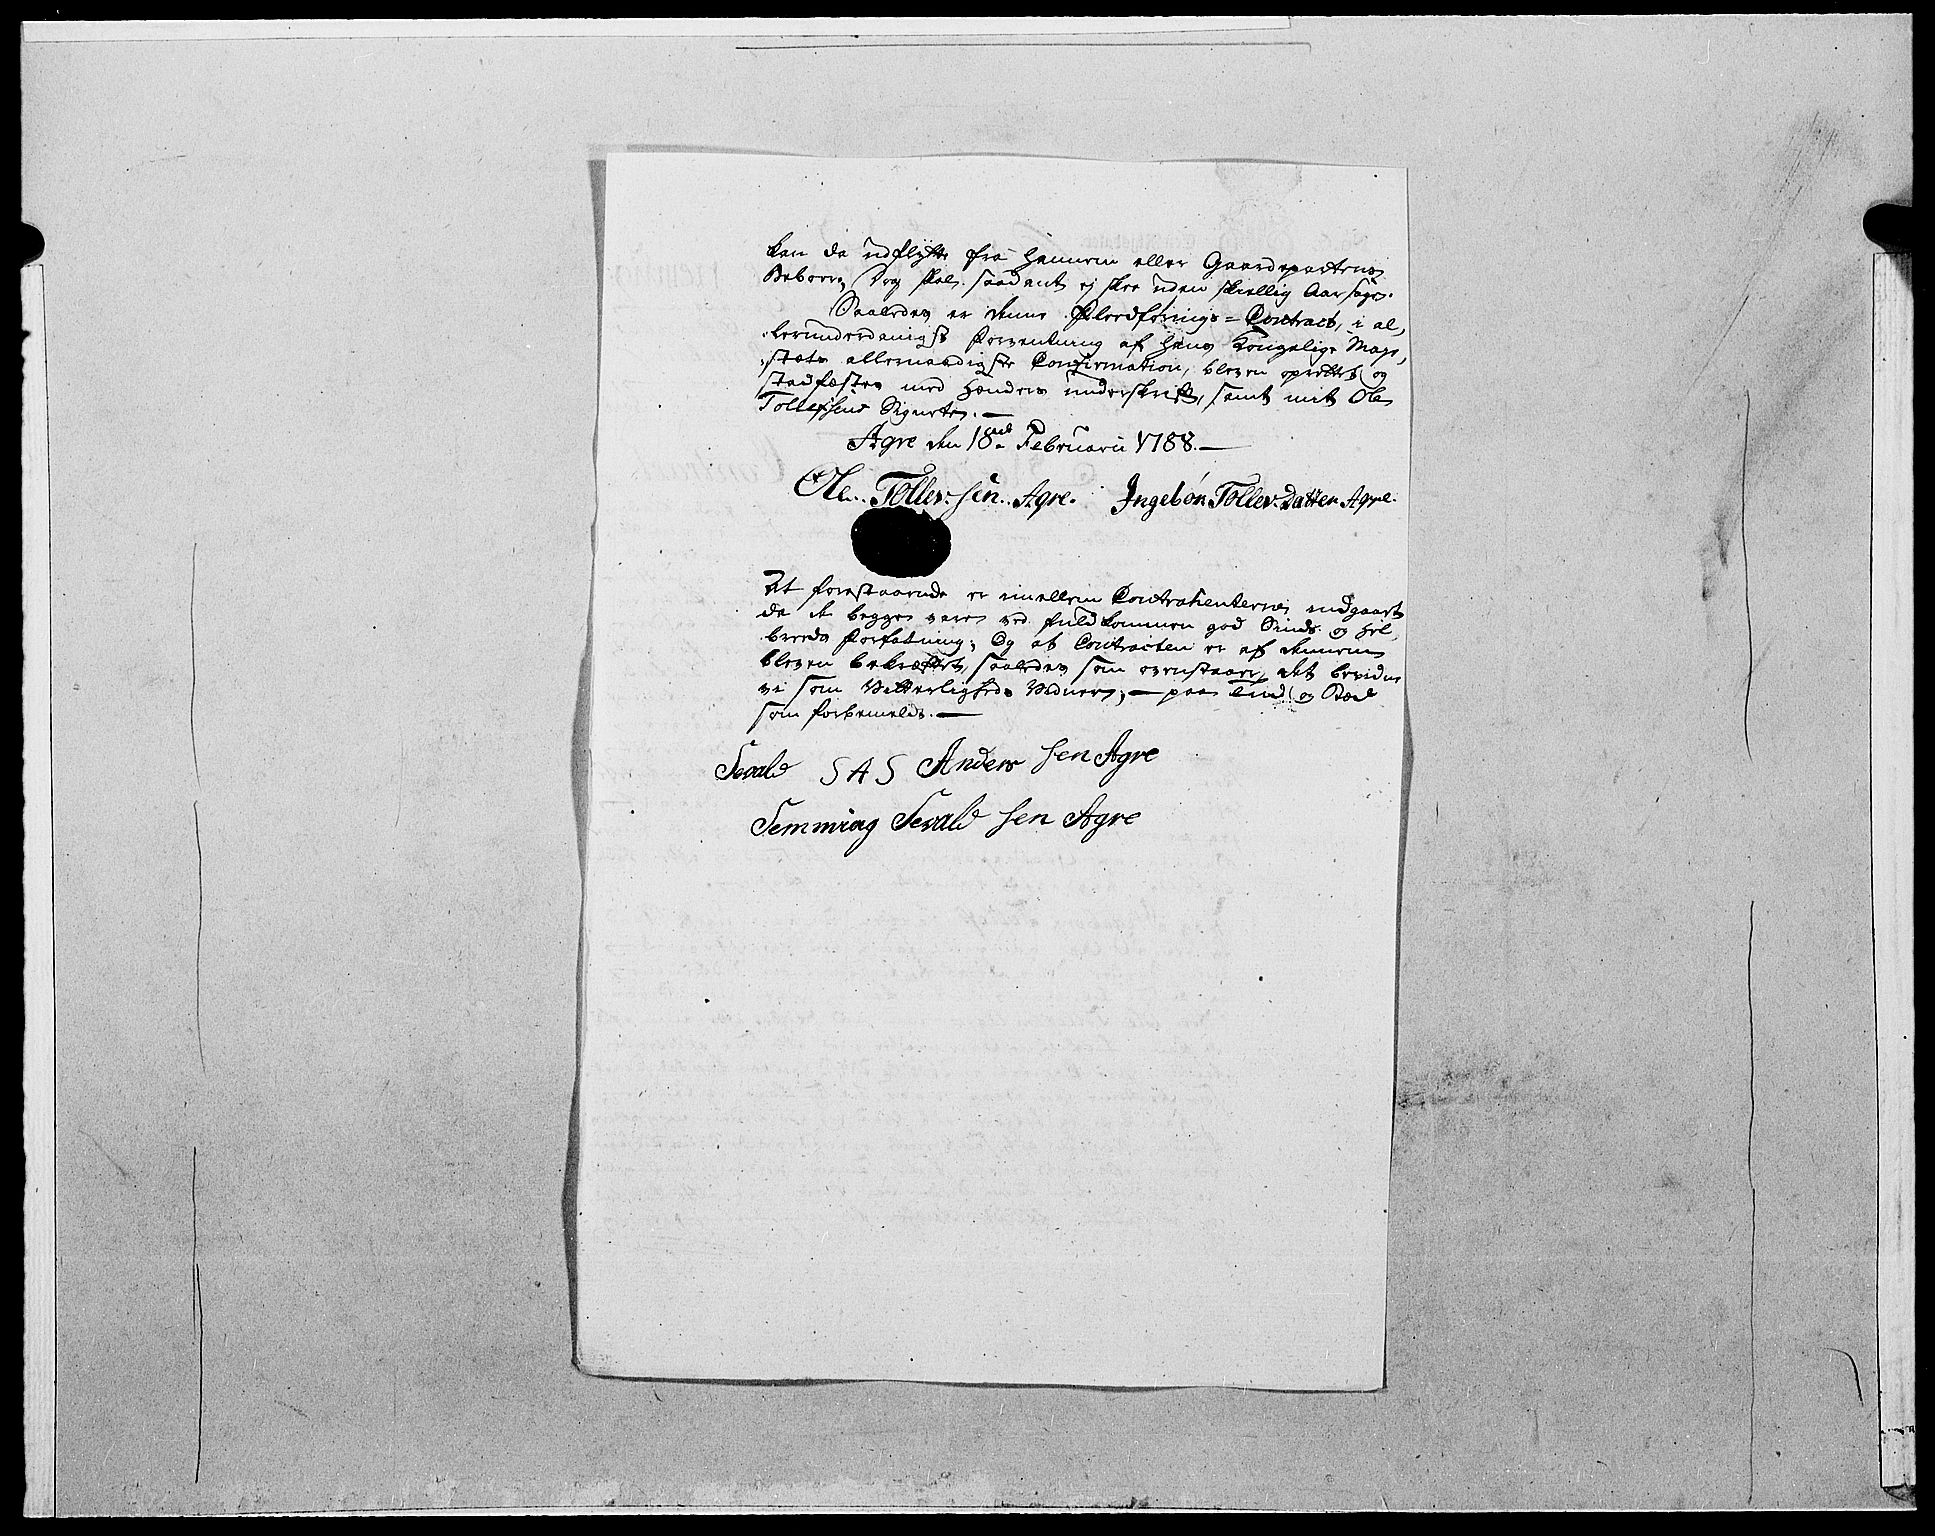 kan da udflytte fra hannem eller Gaardepartens
Beboere, Dog skal saadant ej skee uden skiellig Aarsage.
Saaledes er denne Fledførings=Contract, i al,
lerunderdanigst Forventning af Hans Kongelige Maje,
stæts allernaadigste Confirmation, bleven oprettet og
stadfæstes med Hænders underskrift, samt mit Ole
Tollefsens Signete.—
Agre den 18de Februarii 1788.—
Ole.. Toller.sen.. Agre. Ingebør Toller.datter Agre.
At forestaaende er imellem Contrahenterne indgaaet
da de begge vare ved fuldkommen god Sinds og Hel,
breds Forfatning; Og at Contracten er af dennem
bleven bekræftet, saaledes som ovenstaaer, det bevidner
vi som Vitterligheds Vidner; — paa Tiid og Stæd
som forbemeldt.—
Sevald SAS Anders sen Agre
Semming Sevald sen Agre